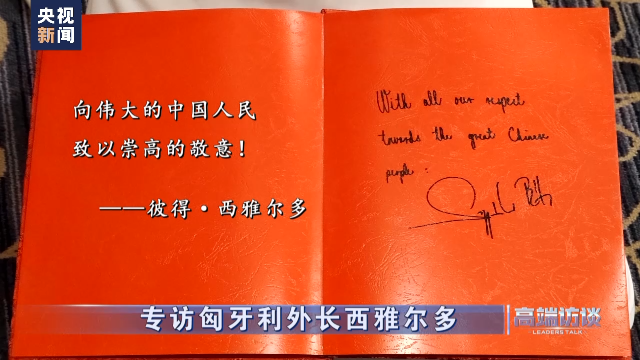 央视
新闻
向伟大的中国人民
致以崇高的敬意！
——彼得·西雅尔多
With all our respect
towards the great Chinese
people.
专访匈牙利外长西雅尔多
高端访谈
LEADERS TALK